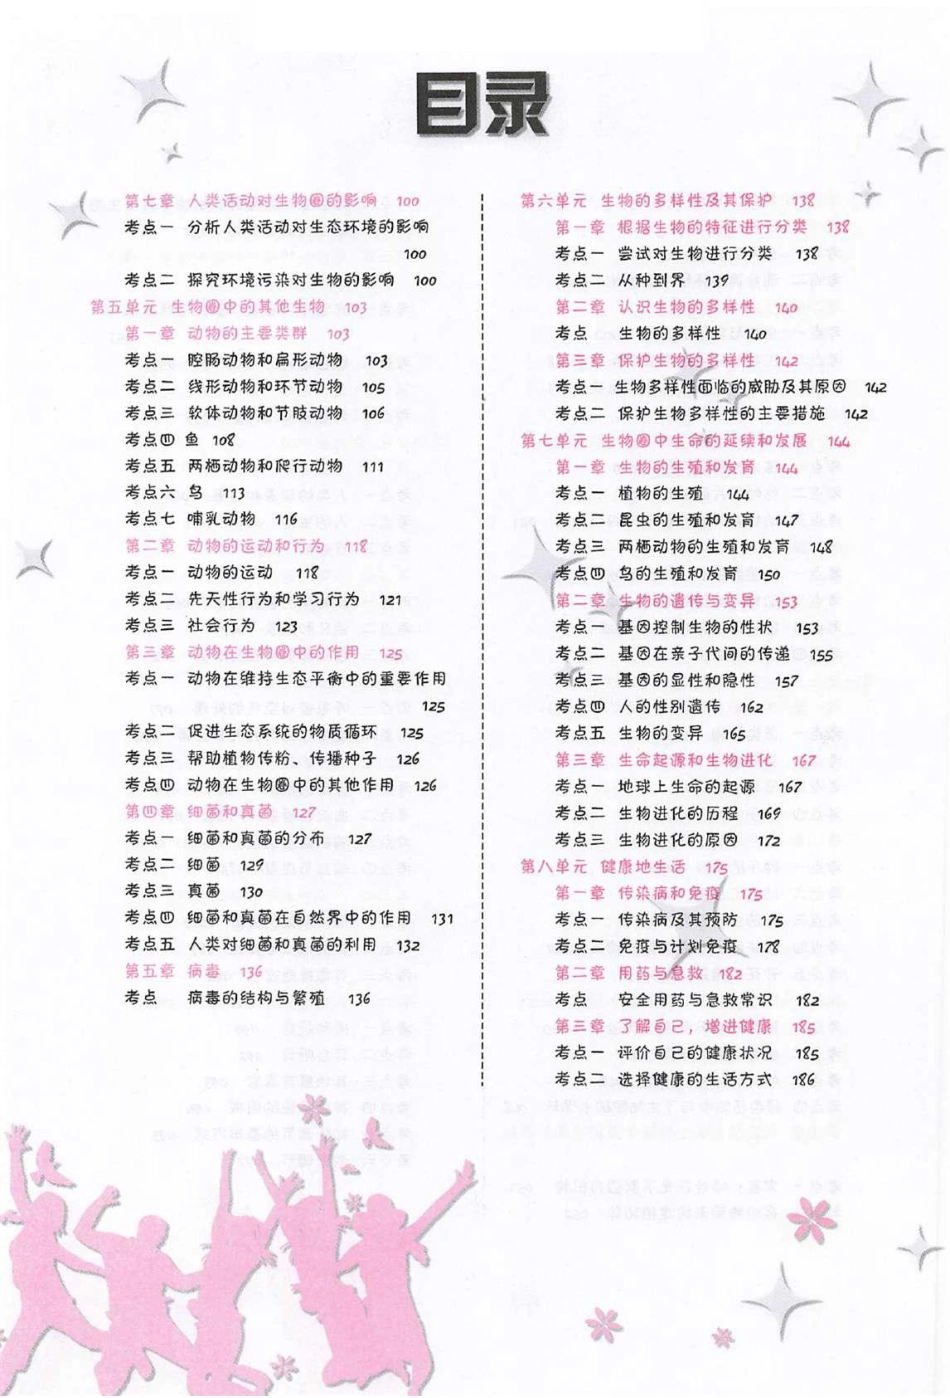 目录
第七章 人类活动对生物圈的影响 100
考点一 分析人类活动对生态环境的影响
100
考点二 探究环境污染对生物的影响 100
第五单元 生物圈中的其他生物 103
第一章 动物的主要类群 103
考点一 腔肠动物和扁形动物 103
考点二 线形动物和环节动物 105
考点三 软体动物和节肢动物 106
考点四 鱼 108
考点五 两栖动物和爬行动物 111
考点六 鸟 113
考点七 哺乳动物 116
第二章 动物的运动和行为 118
考点一 动物的运动 118
考点二 先天性行为和学习行为 121
考点三 社会行为 123
第三章 动物在生物圈中的作用 125
考点一 动物在维持生态平衡中的重要作用
125
考点二 促进生态系统的物质循环 125
考点三 帮助植物传粉、传播种子 126
考点四 动物在生物圈中的其他作用 126
第四章 细菌和真菌 127
考点一 细菌和真菌的分布 127
考点二 细菌 129
考点三 真菌 130
考点四 细菌和真菌在自然界中的作用 131
考点五 人类对细菌和真菌的利用 132
第五章 病毒 136
考点 病毒的结构与繁殖 136
第六单元 生物的多样性及其保护 138
第一章 根据生物的特征进行分类 138
考点一 尝试对生物进行分类 138
考点二 从种到界 139
第二章 认识生物的多样性 140
考点 生物的多样性 140
第三章 保护生物的多样性 142
考点一 生物多样性面临的威胁及其原因 142
考点二 保护生物多样性的主要措施 142
第七单元 生物圈中生命的延续和发展 144
第一章 生物的生殖和发育 144
考点一 植物的生殖 144
考点二 昆虫的生殖和发育 147
考点三 两栖动物的生殖和发育 148
考点四 鸟的生殖和发育 150
第二章 生物的遗传与变异 153
考点一 基因控制生物的性状 153
考点二 基因在亲子代间的传递 155
考点三 基因的显性和隐性 157
考点四 人的性别遗传 162
考点五 生物的变异 165
第三章 生命起源和生物进化 167
考点一 地球上生命的起源 167
考点二 生物进化的历程 169
考点三 生物进化的原因 172
第八单元 健康地生活 175
第一章 传染病和免疫 175
考点一 传染病及其预防 175
考点二 免疫与计划免疫 178
第二章 用药与急救 182
考点 安全用药与急救常识 182
第三章 了解自己，增进健康 185
考点一 评价自己的健康状况 185
考点二 选择健康的生活方式 186